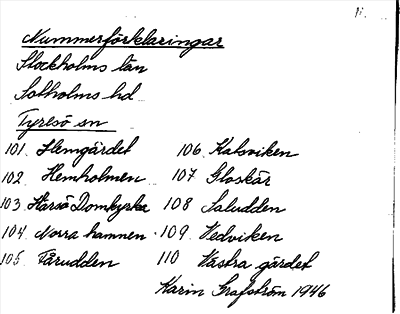 Nummerförklaringar
Stockholms län
Sotholms hd
Tyresö sn
101. Hemgärdet 106. Kalvviken
102. Hemholmen 107 Gloskär
103 Härsö Domkyrka 108 Saludden
104. Norra hamnen 109. Vedviken
105. Fårudden 110 Västra gärdet
Karin Grafström 1946